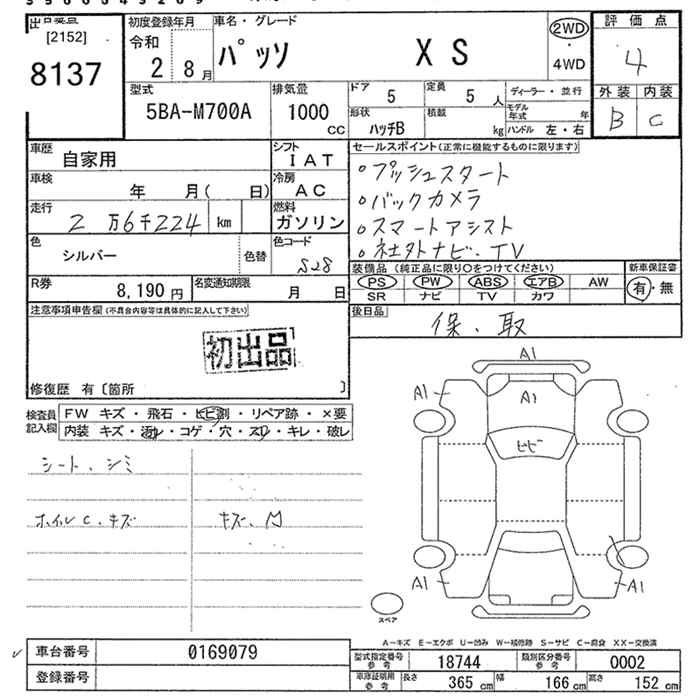 出品票
[2152]
8137
初度登録年月
令和
2 8月
車名・グレード
パッソ X S
2WD
・
4WD
評価点
4
外装 内装
B C
型式
5BA-M700A
排気量
1000
CC
ドア 5
定員 5 人
形状 ハッチB
積載 kg
ディーラー・並行
モデル年式 年
ハンドル 左・右
車歴 自家用
シフト IAT
車検 年 月( 日)
冷房 AC
走行 2万6千224 km
燃料 ガソリン
色 シルバー
色替
色コード S28
R券 8,190円
名変通知期限 月 日
セールスポイント(正常に機能するものに限ります)
○プッシュスタート
○バックカメラ
○スマートアシスト
○社外ナビ、TV
装備品(純正品に限り○をつけてください)
PS PW ABS エアB AW
SR ナビ TV カワ
新車保証書
有・無
後日品
保、取
注意事項申告欄(不具合内容等は具体的に記入して下さい)
初出品
修復歴 有〔箇所 〕
検査員記入欄
FW キズ・飛石・ヒビ割・リペア跡・×要
内装 キズ・汚レ・コゲ・穴・スレ・キレ・破レ
シート、シミ
ホイルC、キズ
キズ、凹
A1
A1
A1
A1
ヒビ
A1
A1
スペア
A-キズ E-エクボ U-凹み W-補修跡 S-サビ C-腐食 XX-交換済
車台番号 0169079
登録番号
型式指定番号参考 18744
類別区分番号参考 0002
車庫証明用参考 長さ 365cm 幅 166cm 高さ 152cm